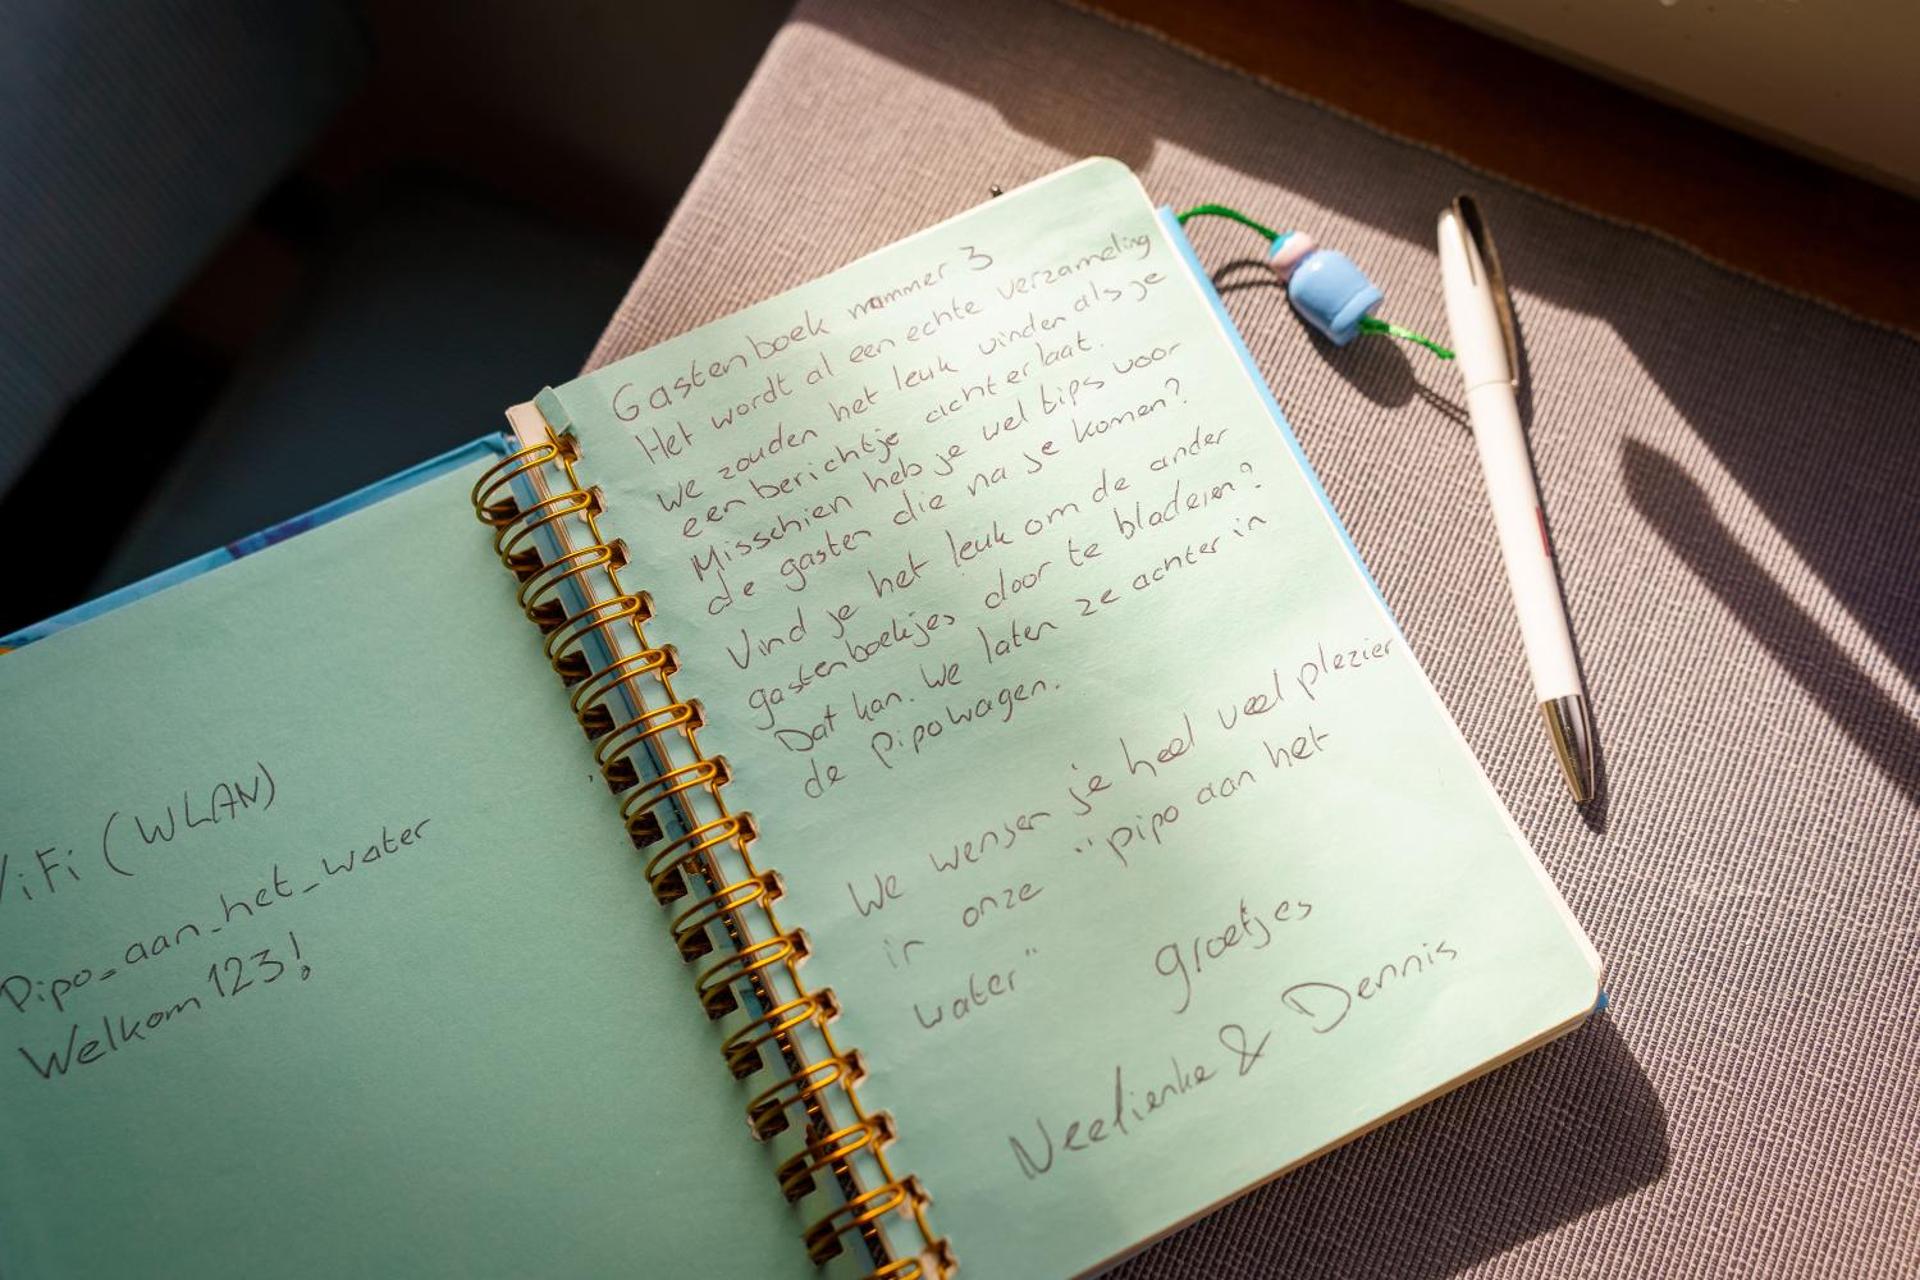 WiFi (WLAN)
Pipo_aan_het_water
Welkom123!
Gastenboek nummer 3
Het wordt al een echte verzameling
We zouden het leuk vinden als je
een berichtje achterlaat.
Misschien heb je wel tips voor
de gasten die na je komen?
Vind je het leuk om de ander
gastenboekjes door te bladeren?
Dat kan. We laten ze achter in
de Pipowagen.
We wensen je heel veel plezier
in onze "pipo aan het
water"
groetjes
Neelienke & Dennis